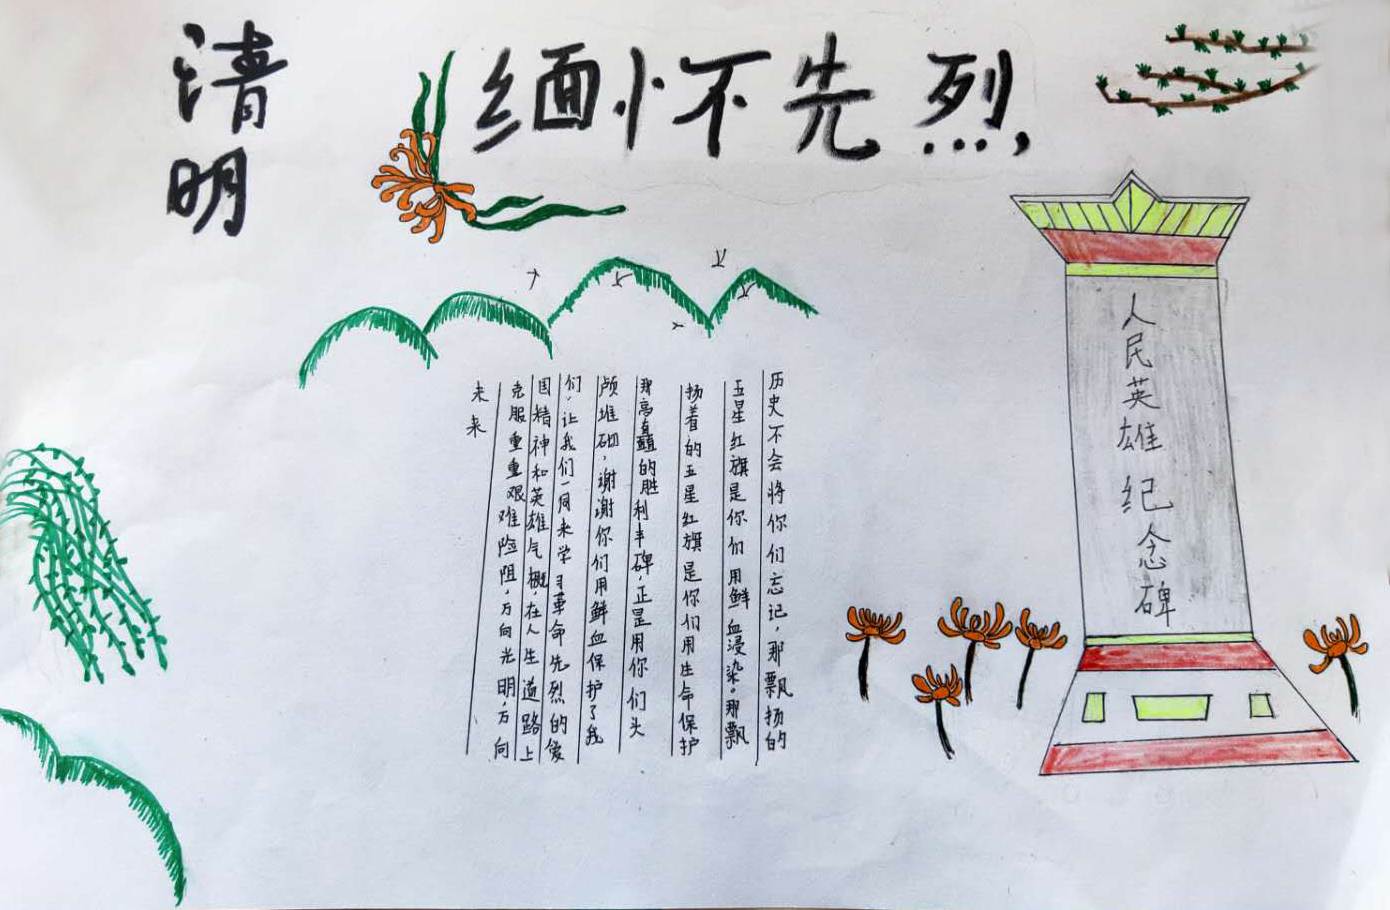 清明
缅怀先烈,
人民英雄纪念碑
历史不会将你们忘记，那飘扬的
五星红旗是你们用鲜血浸染。那飘
扬着的五星红旗是你们用生命保护
那高矗的胜利丰碑，正是用你们头
颅堆砌，谢谢你们用鲜血保护了我
们，让我们一同来学习革命先烈的
国精神和英雄气概，在人生道路上
克服重重艰难险阻，方向光明，方向
未来